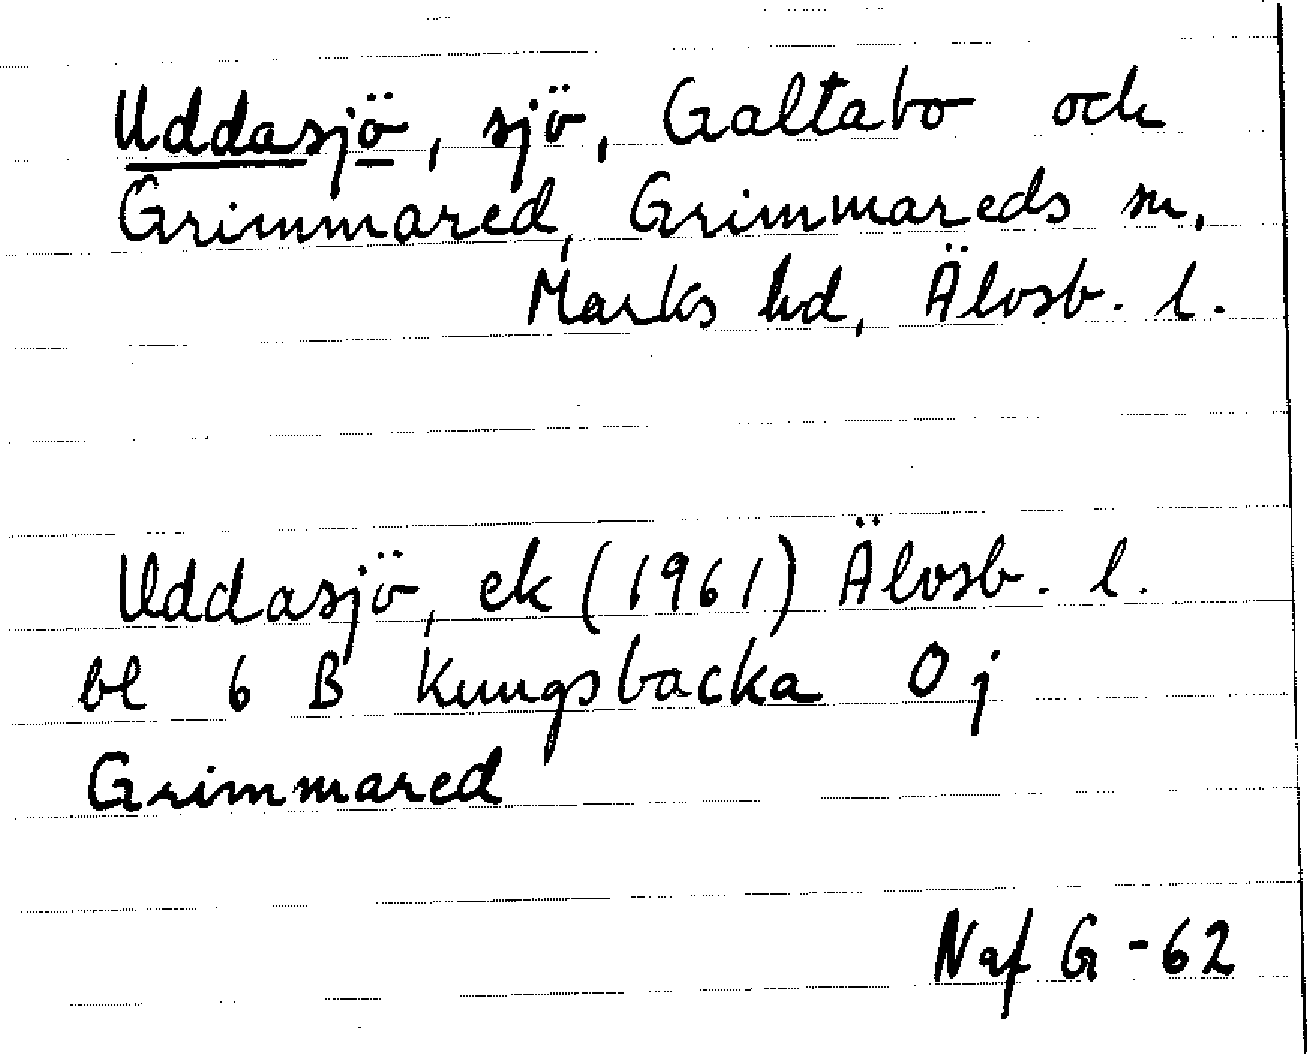 Uddasjö, sjö, Galtabo och
Grimmared, Grimmareds sn,
Marks hd, Älvsb. l.
Uddasjö, ek (1961) Älvsb. l.
bl 6 B Kungsbacka 0 j
Grimmared
Naf G -62